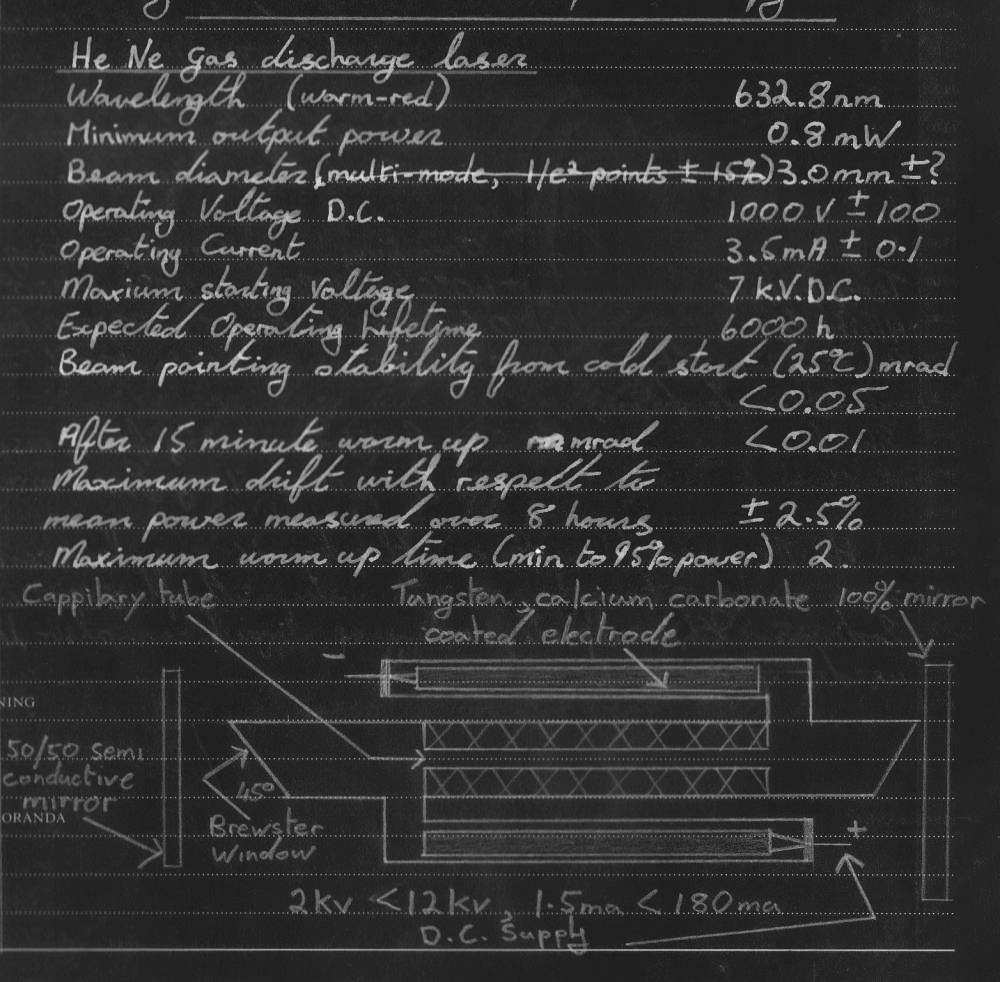 He Ne gas discharge laser
Wavelength (warm-red) 632.8nm
Minimum output power 0.8mW
Beam diameter (multi-mode, 1/e² points ± 15%) 3.0mm ±?
Operating Voltage D.C. 1000V ± 100
Operating Current 3.5mA ± 0.1
Maxium starting Voltage 7 k.V.D.C.
Expected Operating Lifetime 6000h
Beam pointing stability from cold start (25°C) mrad
<0.05
After 15 minute warm up mrad <0.01
Maximum drift with respect to
mean power measured over 8 hours ± 2.5%
Maximum warm up time (min to 95% power) 2.
Cappilary tube
Tungsten, calcium carbonate
coated electrode
100% mirror
−
NING
50/50 semi
conductive
mirror
ORANDA
45°
Brewster
Window
+
2kv <12kv, 1.5ma < 180ma
D.C. Supply